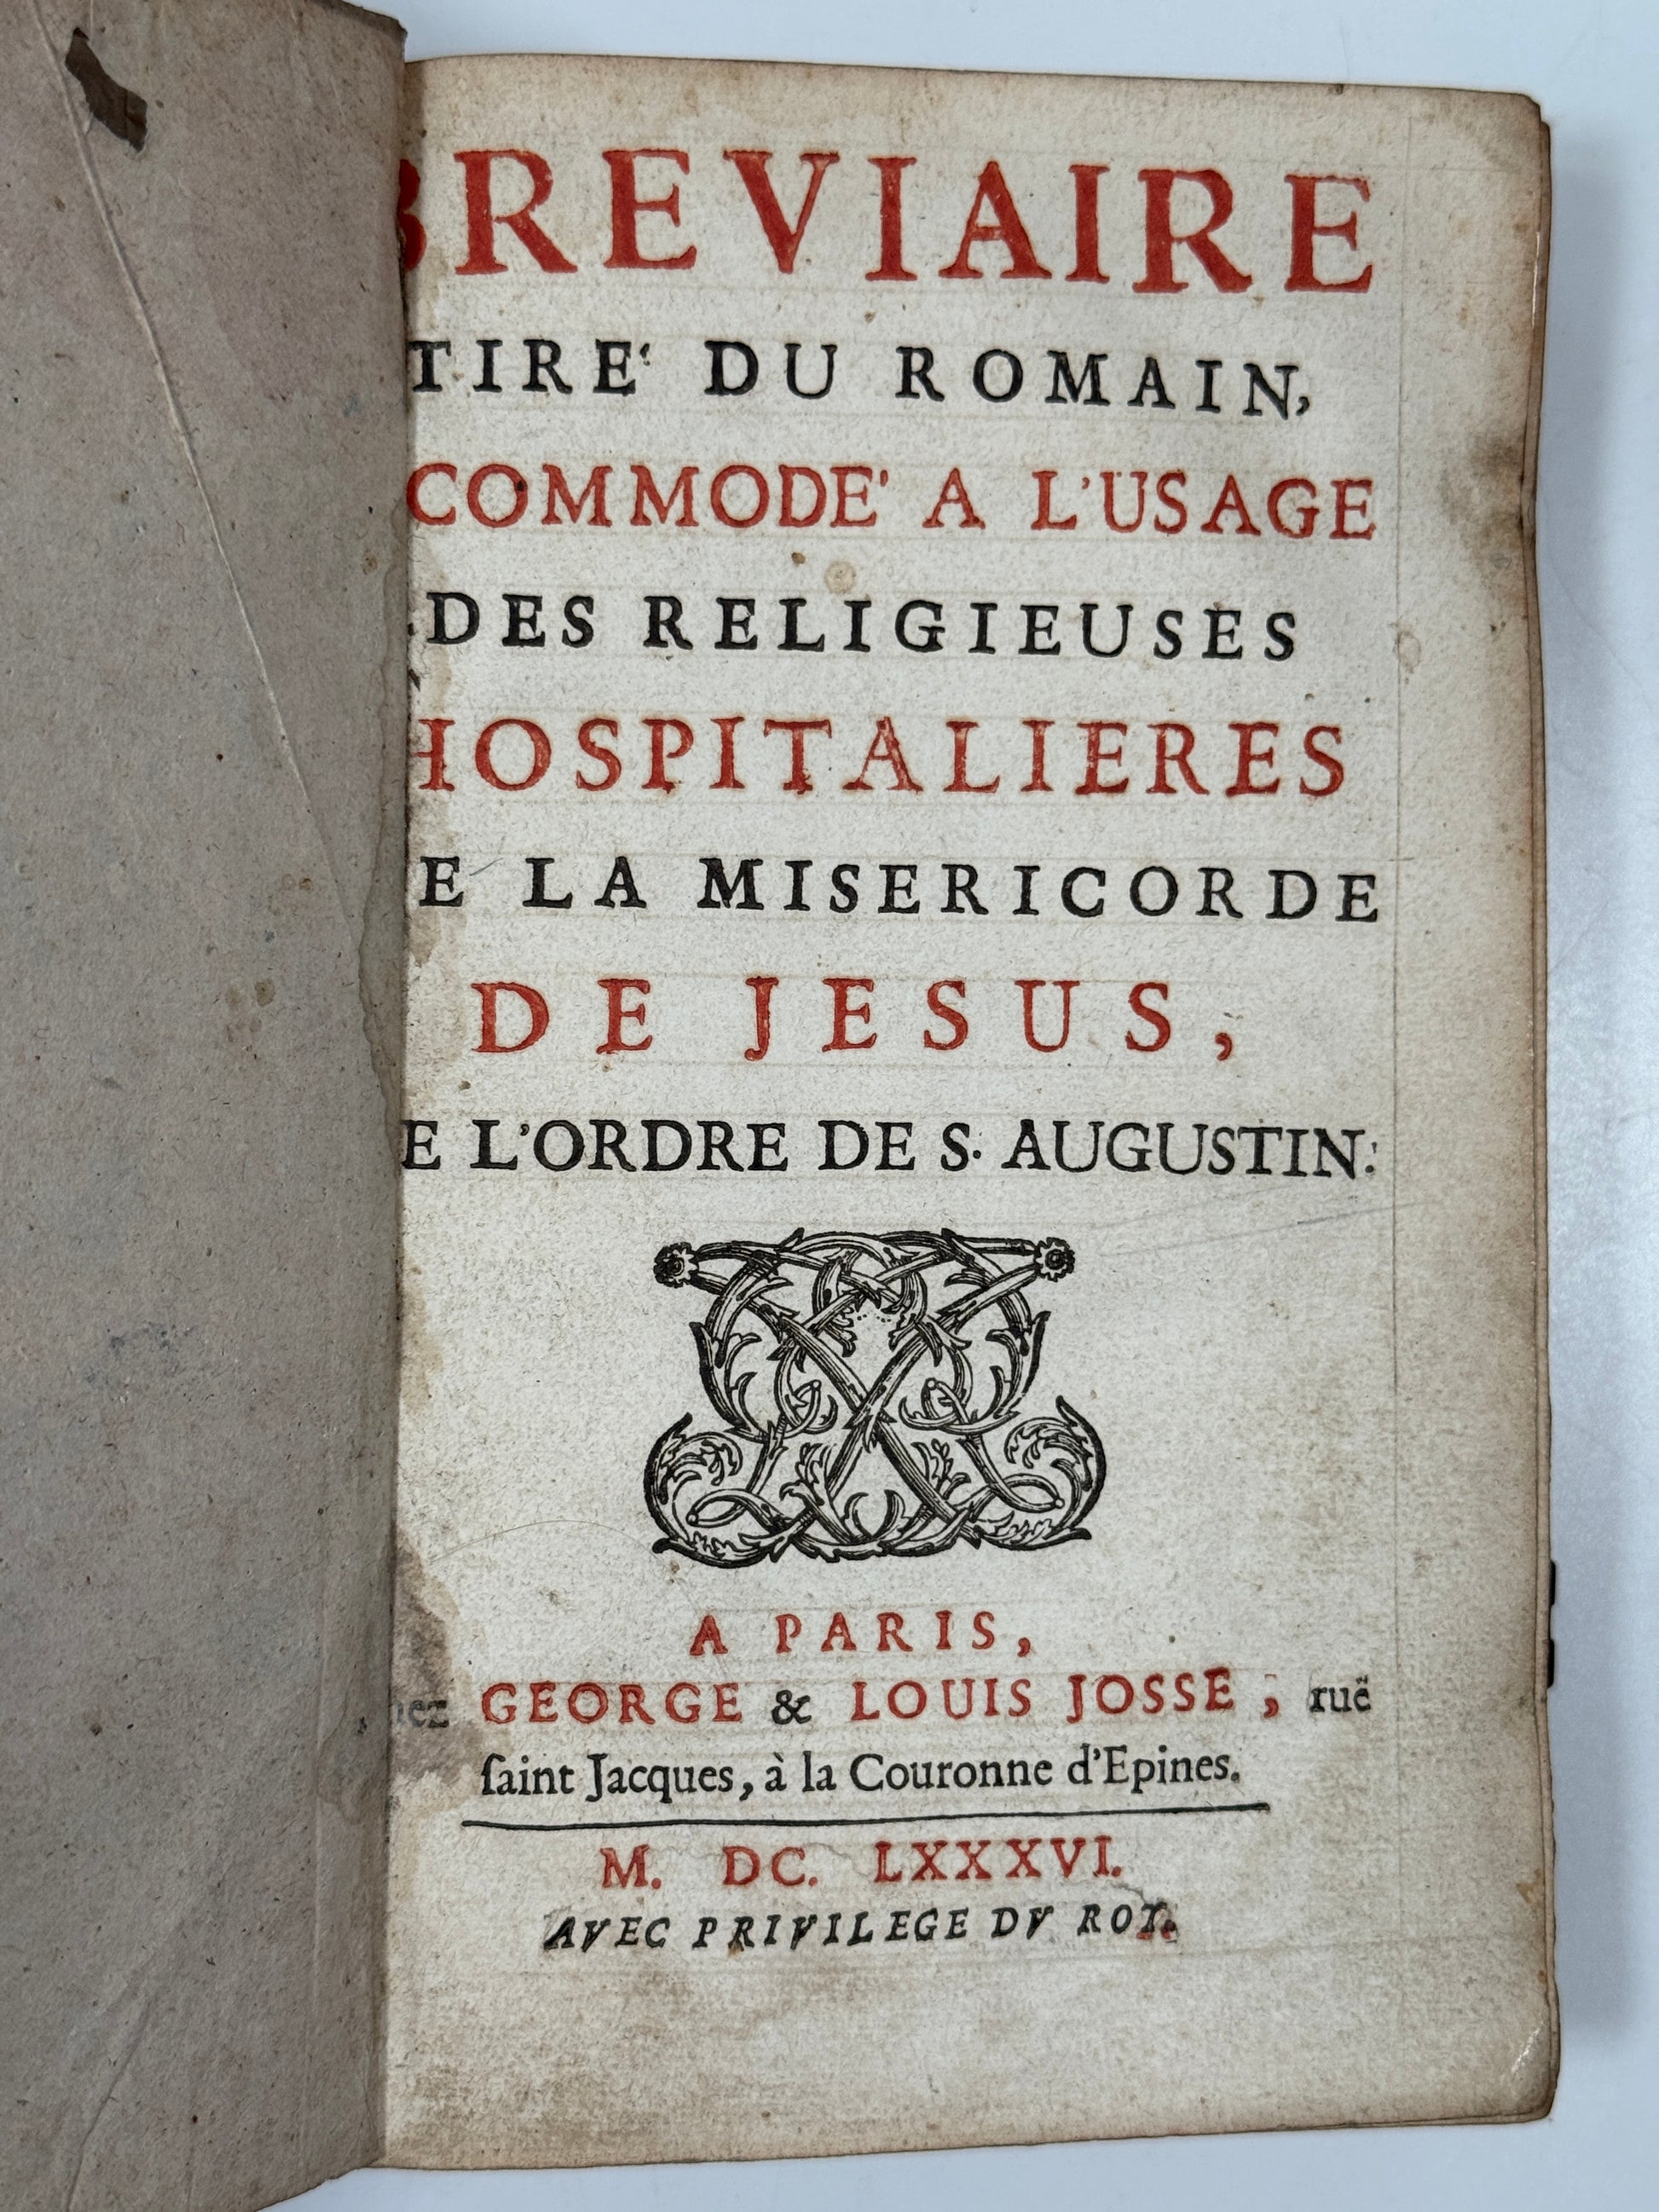 BREVIAIRE
TIRE' DU ROMAIN,
COMMODE' A L'USAGE
DES RELIGIEUSES
HOSPITALIERES
E LA MISERICORDE
DE JESUS,
E L'ORDRE DE S. AUGUSTIN.
A PARIS,
hez GEORGE & LOUIS JOSSE, ruë
ſaint Jacques, à la Couronne d'Epines.
M. DC. LXXXVI.
AVEC PRIVILEGE DV ROY.